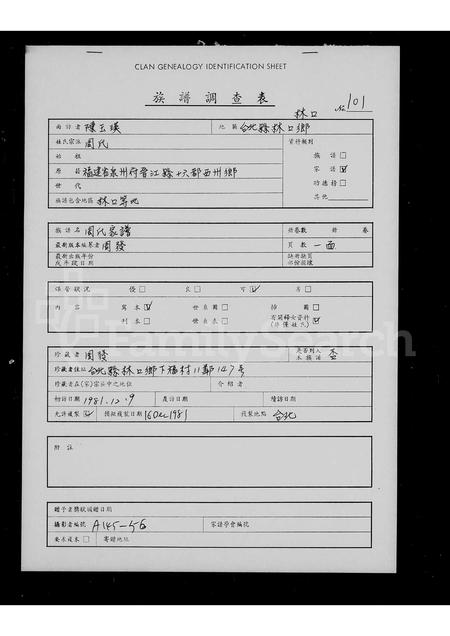 CLAN GENEALOGY IDENTIFICATION SHEET
族譜調查表
林口 No 101
面訪者 陳玉瑛 地區 台北縣林口鄉
姓氏宗派 周氏 資料類別
始祖 族譜 □
原籍 福建省泉州府晉江縣十六都西州鄉 家譜 ☑
世代 功德榜 □
族譜包含地區 林口等地 其他
族譜名 周氏家譜 冊卷數 冊 卷
最新版本編纂者 周發 頁數 一面
最新出版年份
或手段日期
保管狀況 優 □ 良 □ 可 ☑ 劣 □
內容 寫本 ☑ 世系圖 □ 插圖 □
刊本 □ 世系表 □ 有關婦女資料 ☑
FamilySearch
珍藏者 周發 是否列入本族譜 否
珍藏者住址 台北縣林口鄉下福村11鄰147號
珍藏者在(家)宗氏中之地位 介紹者
初訪日期 1981.12.9 复訪日期 續訪日期
允許複製 ☑ 攝影複製日期 16 Dec 1981 複製地點 台北
附註
贈予者獎狀頒贈日期
攝影者編號 A145-56 家譜學會編號
要求複本 □ 寄贈地址